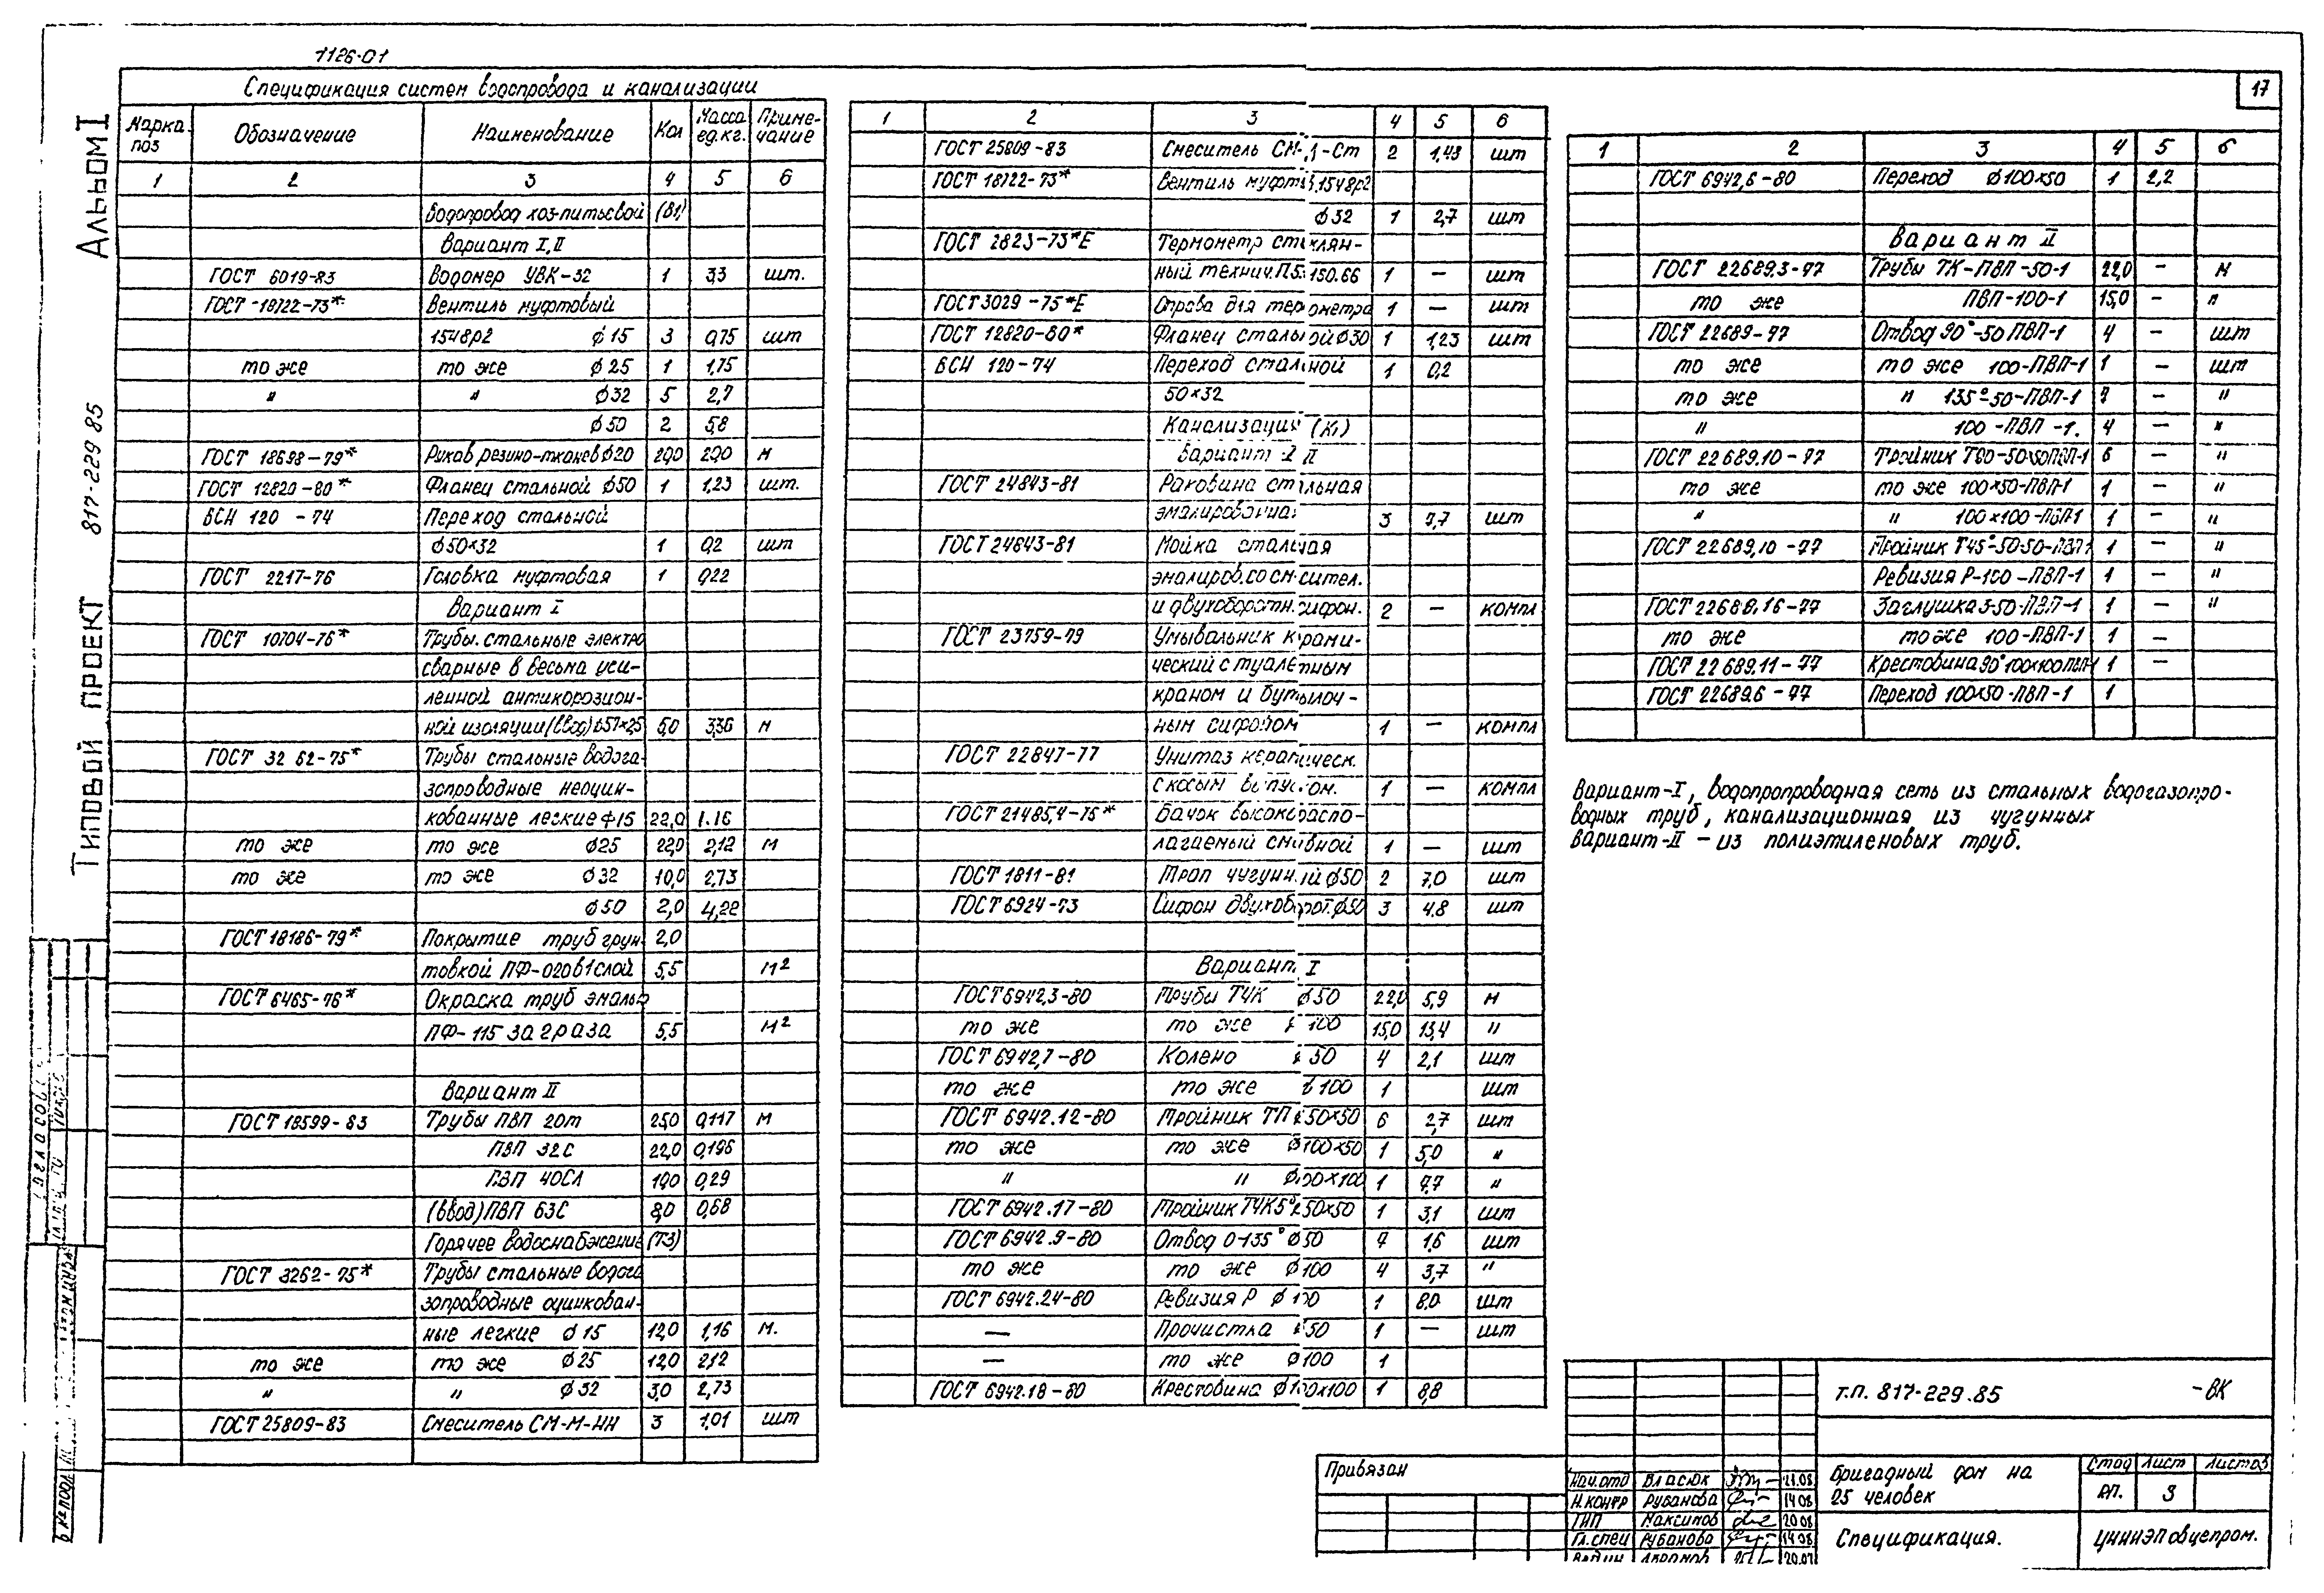 1126-01
17
Альбом I
Типовой проект 817-229 85
Спецификация систем водопровода и канализации
Марка поз Обозначение Наименование Кол Масса ед.кг. Примечание
1 2 3 4 5 6
Водопровод хоз-питьевой (В1)
Вариант I, II
ГОСТ 6019-83 Водомер УВК-32 1 3,3 шт.
ГОСТ 18722-73* Вентиль муфтовый
15ч8р2 ϕ15 3 0,75 шт
то же то же ϕ25 1 1,75
" " ϕ32 5 2,7
ϕ50 2 5,8
ГОСТ 18698-79* Рукав резино-тканев ϕ20 20,0 20,0 м
ГОСТ 12820-80* Фланец стальной ϕ50 1 1,23 шт.
ВСН 120-74 Переход стальной
ϕ50×32 1 0,2 шт
ГОСТ 2217-76 Головка муфтовая 1 0,22
Вариант I
ГОСТ 10704-76* Трубы стальные электро
сварные в весьма уси-
ленной антикорозион-
ной изоляции (ввод) ϕ57×2,5 5,0 3,36 м
ГОСТ 3262-75* Трубы стальные водога-
зопроводные неоцин-
кованные легкие ϕ15 22,0 1.16
то же то же ϕ25 22,0 2,12 м
то же то же ϕ32 10,0 2,73
ϕ50 2,0 4,22
ГОСТ 18186-79* Покрытие труб грун- 2,0
товкой ПФ-020 в 1 слой 5,5 м²
ГОСТ 6465-76* Окраска труб эмалью
ПФ-115 за 2 раза 5,5 м²
Вариант II
ГОСТ 18599-83 Трубы ПВП 20т 25,0 0,117 м
ПВП 32С 22,0 0,196
ПВП 40СЛ 10,0 0,29
(ввод) ПВП 63С 8,0 0,68
Горячее водоснабжение (Т3)
ГОСТ 3262-75* Трубы стальные водога
зопроводные оцинкован-
ные легкие ϕ15 12,0 1,16 м.
то же то же ϕ25 12,0 2,12
" " ϕ32 3,0 2,73
ГОСТ 25809-83 Смеситель СМ-М-НН 3 1,01 шт
1 2 3 4 5 6
ГОСТ 25809-83 Смеситель СМ- -Ст 2 1,43 шт
ГОСТ 18722-73* Вентиль муфтов.15ч8р2
ϕ32 1 2,7 шт
ГОСТ 2823-73*Е Термометр стеклян-
ный технич. П5.150.66 1 — шт
ГОСТ 3029-75*Е Оправа для термометра 1 — шт
ГОСТ 12820-80* Фланец стальной ϕ30 1 1,23 шт
ВСН 120-74 Переход стальной 1 0,2
50×32
Канализация (К1)
Вариант I II
ГОСТ 24843-81 Раковина стальная
эмалированная 3 9,7 шт
ГОСТ 24843-81 Мойка стальная
эмалиров. со смесител.
и двухоборотн. сифон. 2 — компл
ГОСТ 23759-79 Умывальник керами-
ческий с туалетным
краном и бутылоч-
ным сифоном 1 — компл
ГОСТ 22847-77 Унитаз керамическ.
с косым выпуском. 1 — компл
ГОСТ 21485,4-75* Бачок высокораспо-
лагаемый смывной 1 — шт
ГОСТ 1811-81 Трап чугунный ϕ50 2 7,0 шт
ГОСТ 6924-73 Сифон двухоборот. ϕ50 3 4.8 шт
Вариант I
ГОСТ 6942,3-80 Трубы ТЧК ϕ50 22,0 5,9 м
то же то же ϕ100 15,0 13,4 "
ГОСТ 6942,7-80 Колено ϕ50 4 2,1 шт
то же то же ϕ100 1 шт
ГОСТ 6942.12-80 Тройник ТП ϕ50×50 6 2,7 шт
то же то же ϕ100×50 1 5,0 "
" " ϕ100×100 1 7,7 "
ГОСТ 6942.17-80 Тройник ТЧК5° ϕ50×50 1 3,1 шт
ГОСТ 6942.9-80 Отвод 0-135° ϕ50 7 1.6 шт
то же то же ϕ100 4 3,7 "
ГОСТ 6942.24-80 Ревизия Р ϕ100 1 8.0 шт
— Прочистка ϕ50 1 — шт
— то же ϕ100 1
ГОСТ 6942.18-80 Крестовина ϕ100×100 1 8,8
1 2 3 4 5 6
ГОСТ 6942,6-80 Переход ϕ100×50 1 2,2
Вариант II
ГОСТ 22689.3-77 Трубы ТК-ПВП-50-1 22,0 — м
то же ПВП-100-1 15,0 — "
ГОСТ 22689-77 Отвод 90°-50 ПВП-1 4 — шт
то же то же 100-ПВП-1 1 — шт
то же " 135°-50-ПВП-1 7 — "
" 100-ПВП-1. 4 — "
ГОСТ 22689.10-77 Тройник Т90-50×50ПВП-1 6 — "
то же то же 100×50-ПВП-1 1 — "
" " 100×100-ПВП-1 1 — "
ГОСТ 22689,10-77 Тройник Т45°-50-50-ПВП-1 1 — "
Ревизия Р-100-ПВП-1 1 — "
ГОСТ 22689,16-77 Заглушка З-50-ПВП-1 1 — "
то же то же 100-ПВП-1 1 —
ГОСТ 22689.11-77 Крестовина 90° 100×100 ПВП-1 1 —
ГОСТ 22689.6-77 Переход 100×50-ПВП-1 1
Вариант-I, водопропроводная сеть из стальных водогазопро-
водных труб, канализационная из чугунных
Вариант-II - из полиэтиленовых труб.
Привязан
Нач.отд Власюк 21.08
Н.контр Рубанова 14 08
ГИП Максимов 20 08
Гл.спец Рубанова 14 08
т.п. 817-229.85 -ВК
Бригадный дом на
25 человек
Стад Лист Листов
РП. 3
Спецификация.
ЦНИИЭПовцепром.